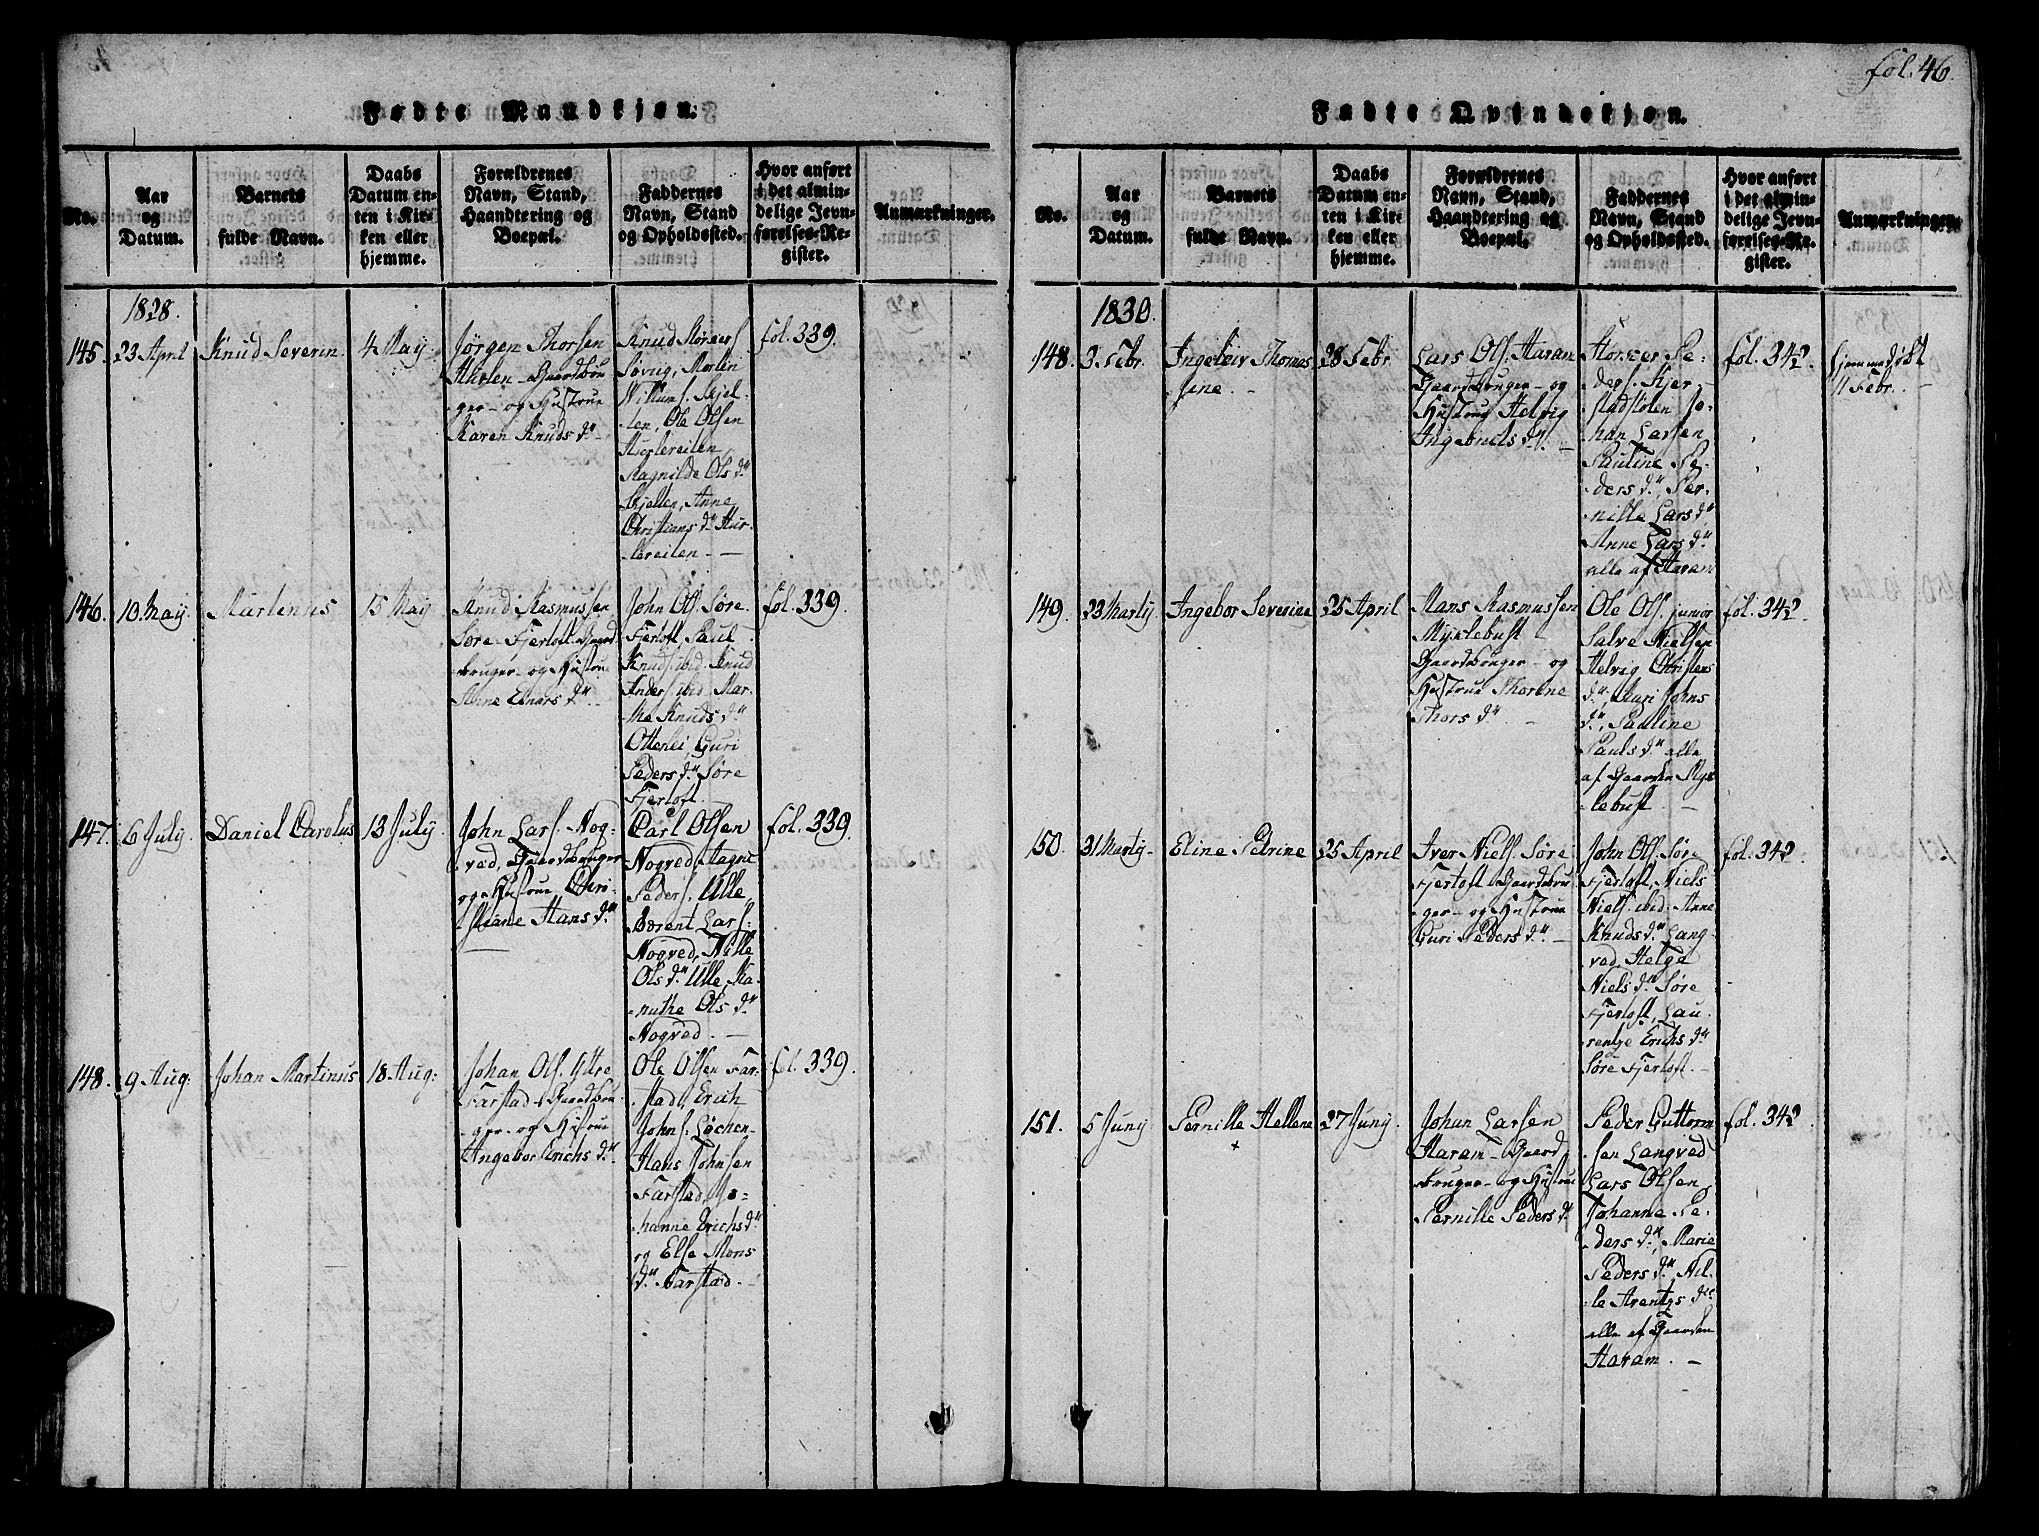 föl. 46.
Fødte Mandkjøn.
No.
Aar
og
Datum.
Barnets
fulde Navn.
Daabs
Datum en-
ten i Kir-
ken eller
hjemme.
Forældrenes
Navn, Stand,
Haandtering og
Boepæl.
Faddernes
Navn, Stand
og Opholdssted.
Hvor anført
i det almin-
delige Jevn-
førelses-Re-
gister.
Anmærkninger.
1828.
145.
23 April
Knud Severin
4 May
Jørgen Thorsen
Gaardbru
ger og Hustrue
Karen Knuds dr
Knud
Søvug, Morten
Willums. Skjel-
ten, Ole Olsen
Hurlereiten,
Ragnilde Ols dr
Skjelten, Anne
Christians dr Hur-
lereiten
fol. 339.
146.
10 May
Martenus
15 May
Knud Rasmussen
Søre Fjertoft Gaard
bruger og Hustrue
Anne Einars dr
John Ols. Søre
Fjertoft Paul
Knuds. ibid. Knud
Anders. ibid. Mar-
the Knuds dr
Otterlei, Guri
Peders dr Søre
Fjertoft
fol. 339.
147.
6 July
Daniel Carolus
13 July
John Lars. Nog-
ved, Gaardbruger
og Hustrue Chri-
stiane Hans dr
Carl Olsen
Nogved, Aagne
Peders. Ulle,
Berent Lars.
Nogved, Nille
Ols dr Ulle, Ka-
nuthe Ols dr
Nogved.
fol. 339.
148.
9 Aug:
Johan Martinus
18 Aug:
Johan Ols. Yttre
Farstad Gaardbru-
ger og Hustrue
Ingebor Erichs dr
Ole Olsen Far-
stad, Erich
Johns. Løchen
Hans Johnsen
Farstad, Jo-
hanne Erichs dr
og Else Mons
dr Farstad.
fol. 339.
Fødte Qvindekjøn.
No.
Aar
og
Datum.
Barnets
fulde Navn.
Daabs
Datum en-
ten i Kir-
ken eller
hjemme.
Forældrenes
Navn, Stand,
Haandtering og
Boepæl.
Faddernes
Navn, Stand
og Opholdssted.
Hvor anført
i det almin-
delige Jevn-
førelses-Re-
gister.
Anmærkninger.
1830.
148.
3 Febr.
Ingeleiv Thomas
sine.
28 Febr
Lars Ols. Haram
Gaardbruger og
Hustrue Helvig
Ingebricts dr
Pe-
ders. Kjer-
stadstølen Jo-
han Larsen
Pauline Pe-
ders dr, Per-
nille Lars dr
Anne Lars dr
alle af Haram
föl. 342.
hjemmedøbt
11 Febr.
149.
23 Marty
Ingebor Severine
25 April
Hans Rasmussen
Myklebust
Gaardbruger og
Hustrue Thorine
Thors dr
Ole Ols. junior
Salve Nielsen
Helvig Christens
dr, Guri Johns
dr, Pauline
Pauls dr alle
af Gaarden Myk
lebust
föl. 342.
150.
31 Marty
Eline Petrine
25 April
Iver Niels. Søre
Fjertoft Gaardbru
ger og Hustrue
Guri Peders dr
John Ols. Søre
Fjertoft, Niels
Niels. ibid. Anne
Knuds dr Lang-
vad, Helge
Niels dr Søre
Fjertoft, Lau-
rentze Erichs dr
Søre Fjertoft.
föl. 342.
151.
5 Juny
Pernille Hellene
+
27 Juny
Johan Larsen
Haram Gaard
bruger og Hustrue
Pernille Peders dr
Peder Guttorm
sen Langved
Lars Olsen
Johanne Pe-
ders dr, Marie
Peders dr, Nil-
le Arentzs dr
alle af Gaarden
Haram.
fol. 342